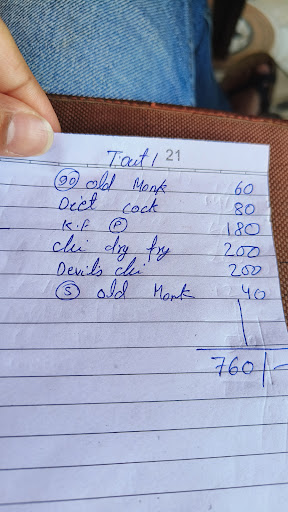 Tout / 21
90 old Monk 60
Diet cock 80
K.F P 180
chi dry fry 200
Devils chi 200
S old Monk 40
760/-